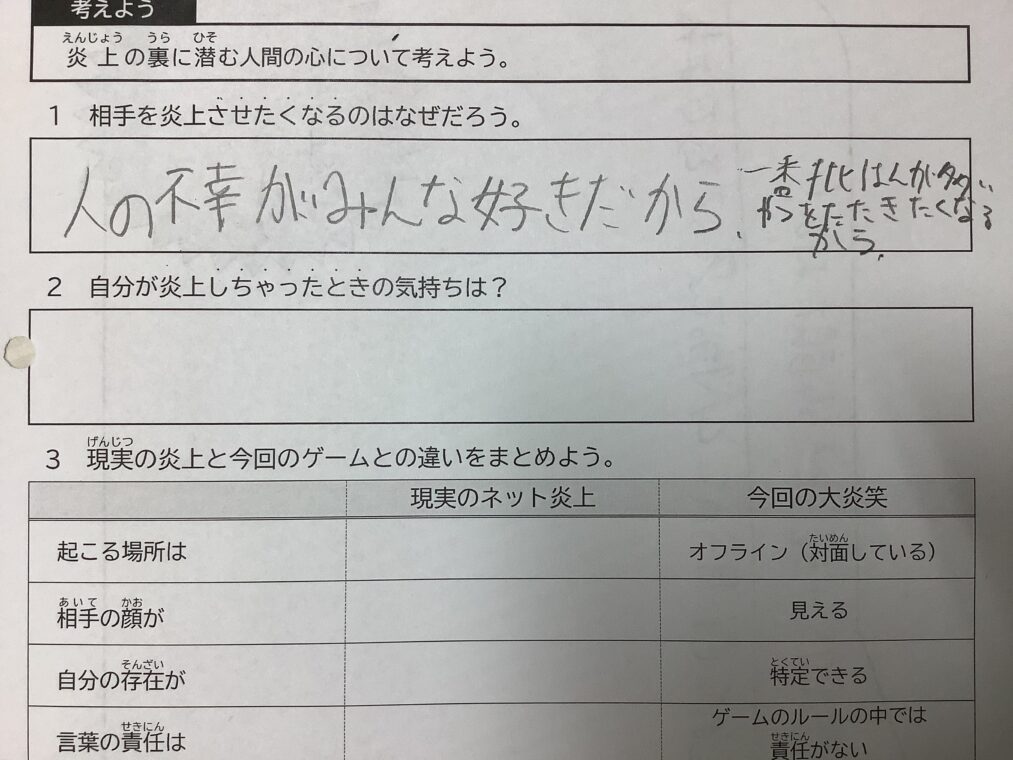 考えよう
炎上の裏に潜む人間の心について考えよう。
えんじょう うら ひそ
1 相手を炎上させたくなるのはなぜだろう。
人の不幸がみんな好きだから、
一番批はんが多い
やつをたたきたくなる
から、
2 自分が炎上しちゃったときの気持ちは？
3 現実の炎上と今回のゲームとの違いをまとめよう。
げんじつ
現実のネット炎上 今回の大炎笑
起こる場所は オフライン（対面している）
たいめん
相手の顔が 見える
あいて かお
自分の存在が 特定できる
そんざい とくてい
言葉の責任は ゲームのルールの中では
せきにん
責任がない
せきにん